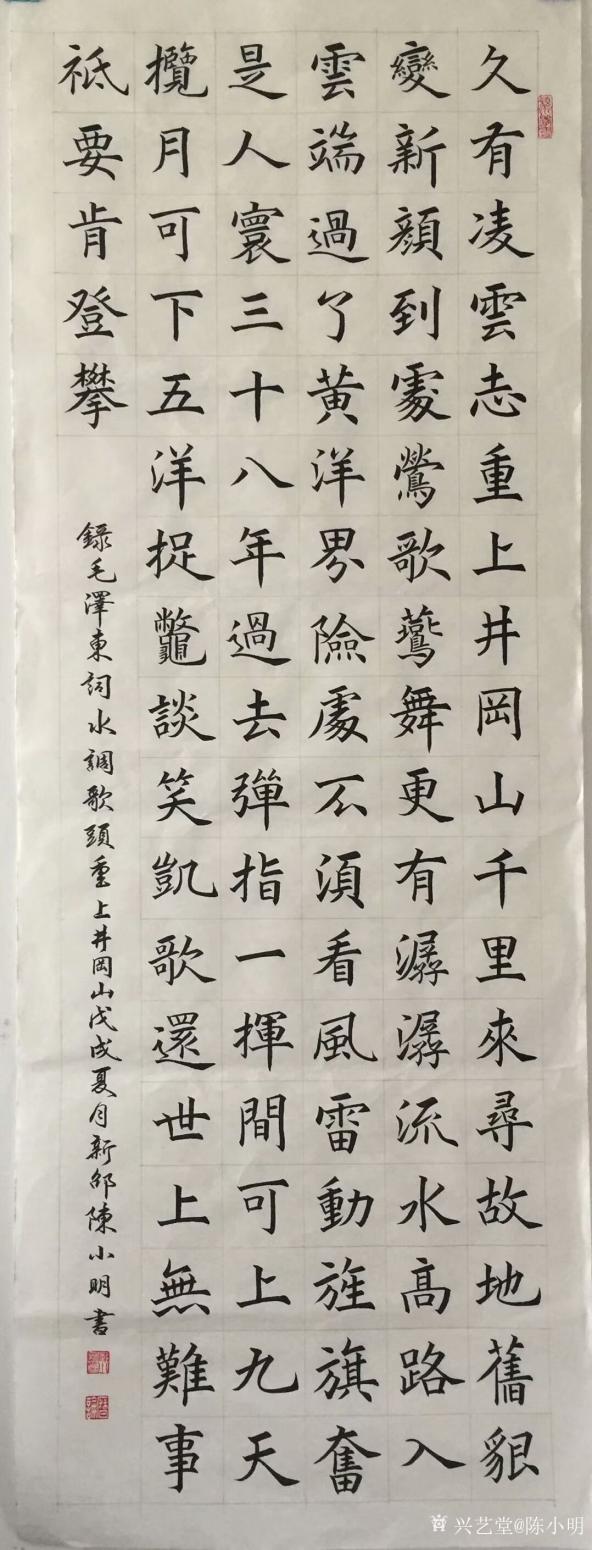 久有凌雲志重上井岡山千里來尋故地舊貌
變新顏到處鶯歌鷰舞更有潺潺流水高路入
雲端過了黃洋界險處不須看風雷動旌旗奮
是人寰三十八年過去彈指一揮間可上九天
攬月可下五洋捉鼈談笑凱歌還世上無難事
祇要肯登攀
錄毛澤東詞水調歌頭重上井岡山戊戌夏月新邵陳小明書
兴艺堂@陈小明